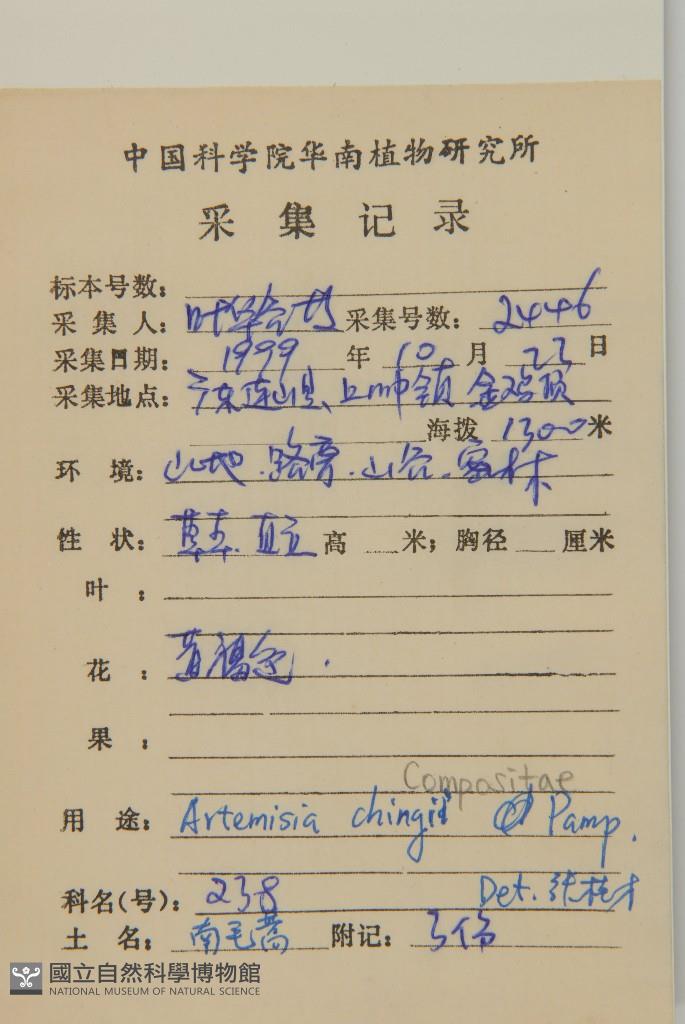 中国科学院华南植物研究所
采集记录
标本号数:
采集人: 叶华谷 采集号数: 2446
采集日期: 1999年10月23日
采集地点: 广东连山县、上帅镇 金鸡顶
海拨 1300米
环境: 山地.路旁.山谷.密林
性状: 草本.直立 高 米; 胸径 厘米
叶:
花: 黄褐色.
果:
Compositae
用途: Artemisia chingii Pamp.
科名(号): 238 Det. 张桂才
土名: 南毛蒿 附记: 3份
國立自然科學博物館
NATIONAL MUSEUM OF NATURAL SCIENCE